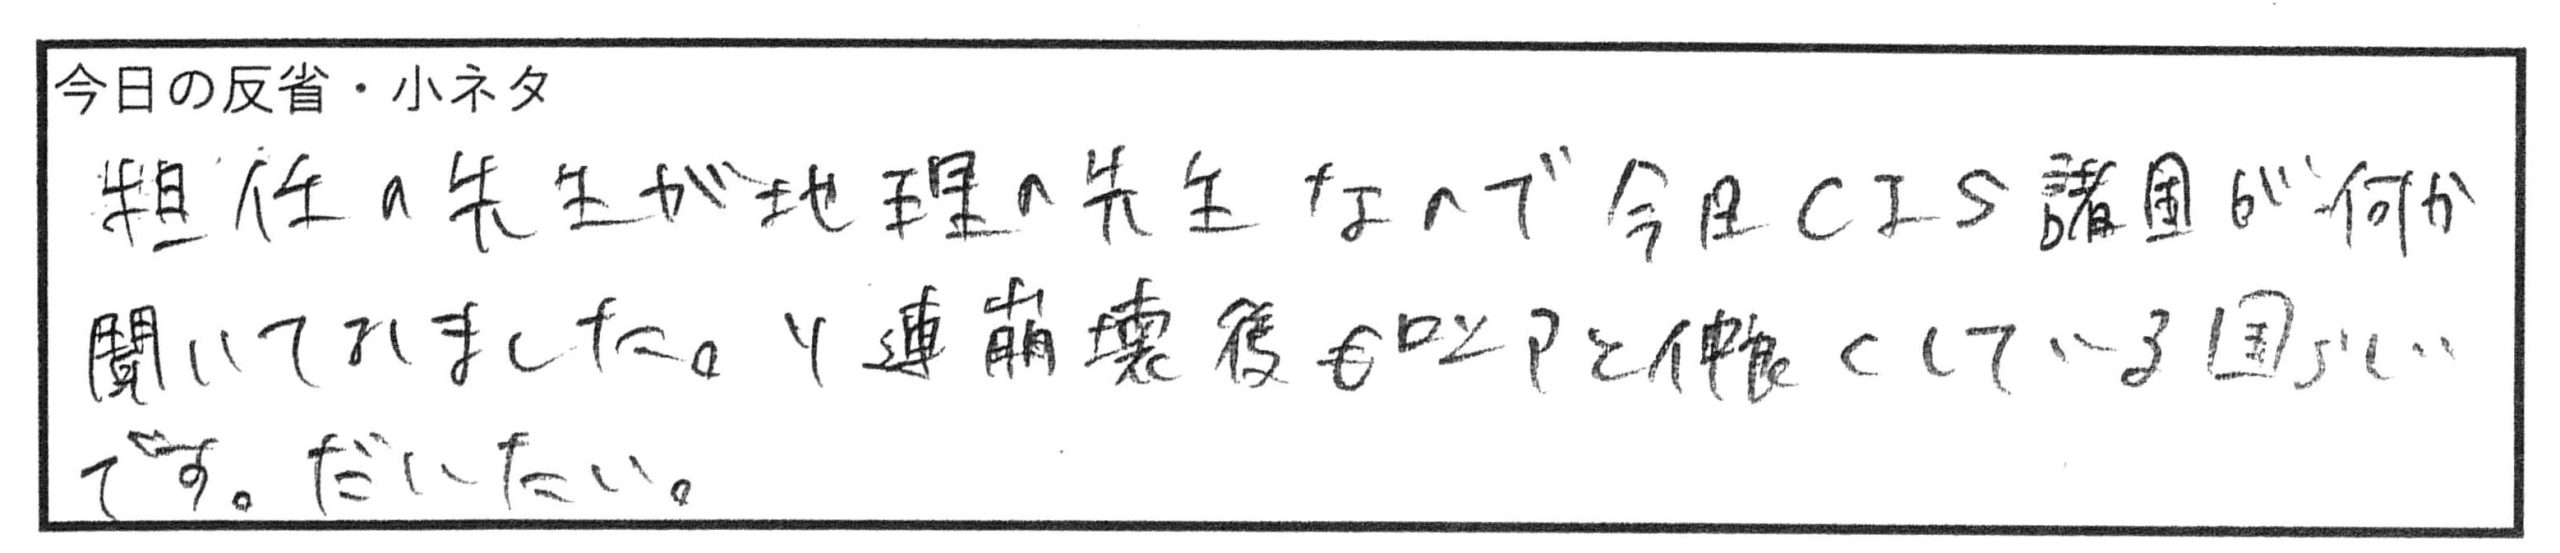 今日の反省・小ネタ
担任の先生が地理の先生なので今日CIS諸国が何か
聞いてみました。ソ連崩壊後もロシアと仲良くしている国らしい
です。だいたい。